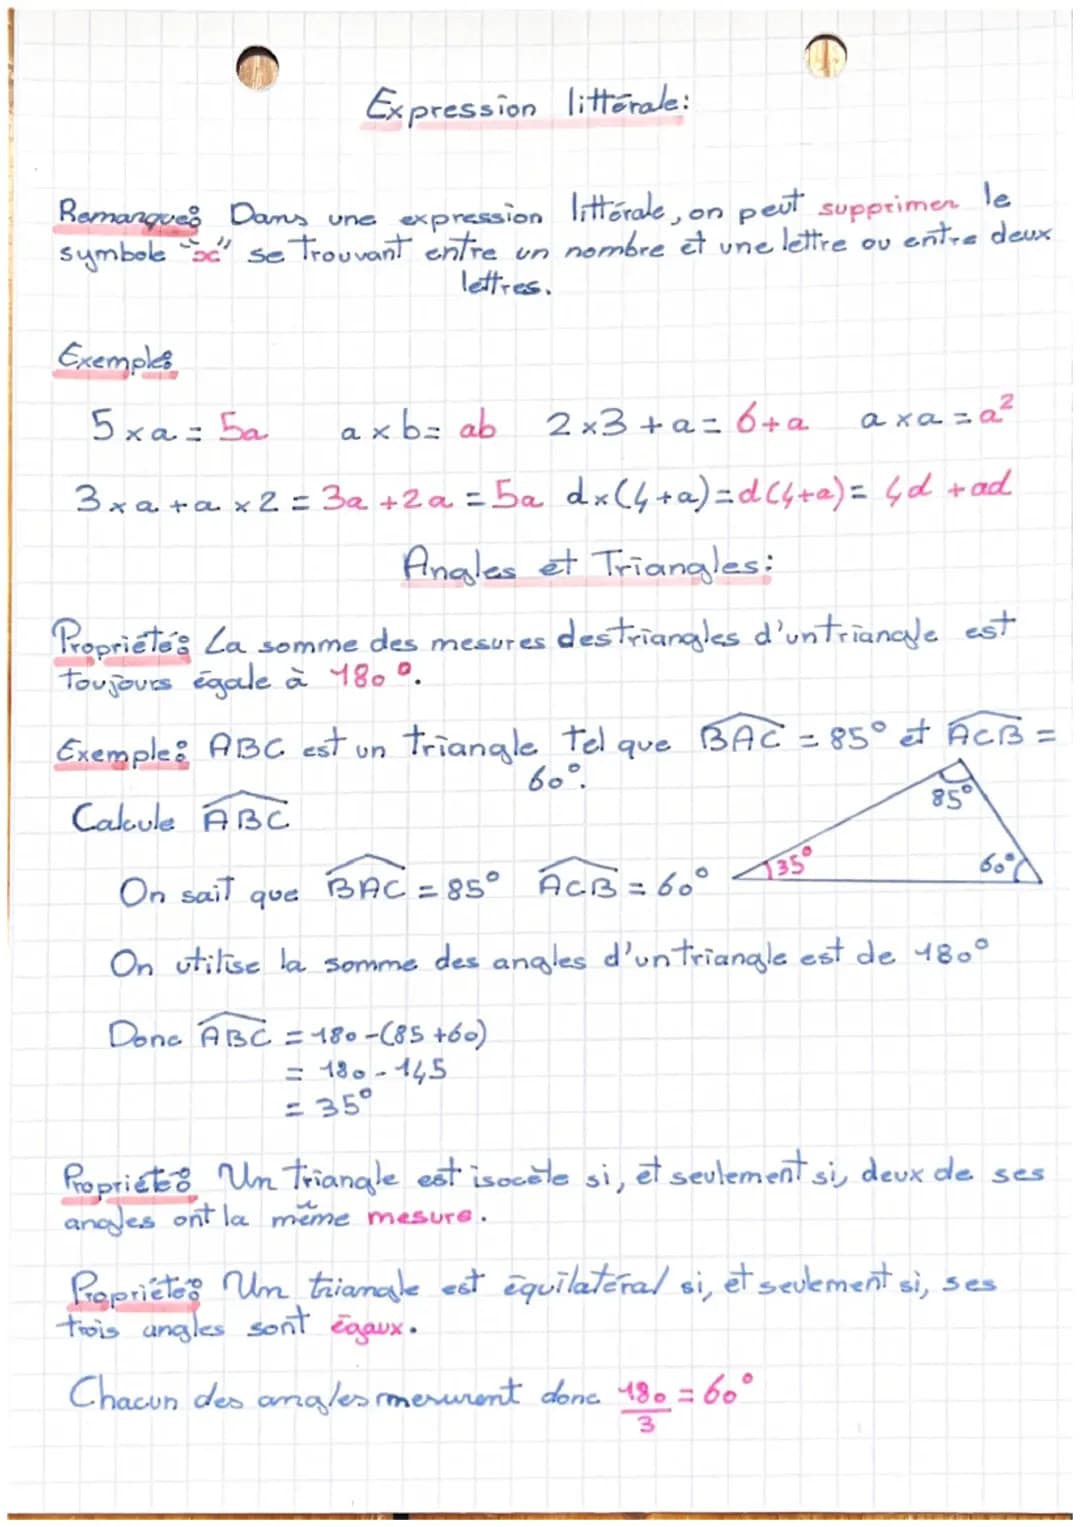 Expression littérale:
Remarque: Dans une expression littérale, on peut supprimer le
symbole "x" se trouvant entre un nombre et une lettre ou entre deux
lettres.
Exemple:
5 x a = 5a a x b = ab 2 x 3 + a = 6 + a a x a = a²
3 x a + a x 2 = 3a + 2a = 5a d x (4 + a) = d(4 + a) = 4d + ad
Angles et Triangles:
Propriété: La somme des mesures des triangles d'un triangle est
toujours égale à 180°.
Exemple: ABC est un triangle tel que \widehat{BAC} = 85° et \widehat{ACB} =
60°.
Calcule \widehat{ABC}
85°
35° 60°
On sait que \widehat{BAC} = 85° \widehat{ACB} = 60°
On utilise la somme des angles d'un triangle est de 180°
Donc \widehat{ABC} = 180 - (85 + 60)
= 180 - 145
= 35°
Propriété: Un triangle est isocèle si, et seulement si, deux de ses
angles ont la même mesure.
Propriété: Un triangle est équilatéral si, et seulement si, ses
trois angles sont égaux.
Chacun des angles mesurent donc 180/3 = 60°